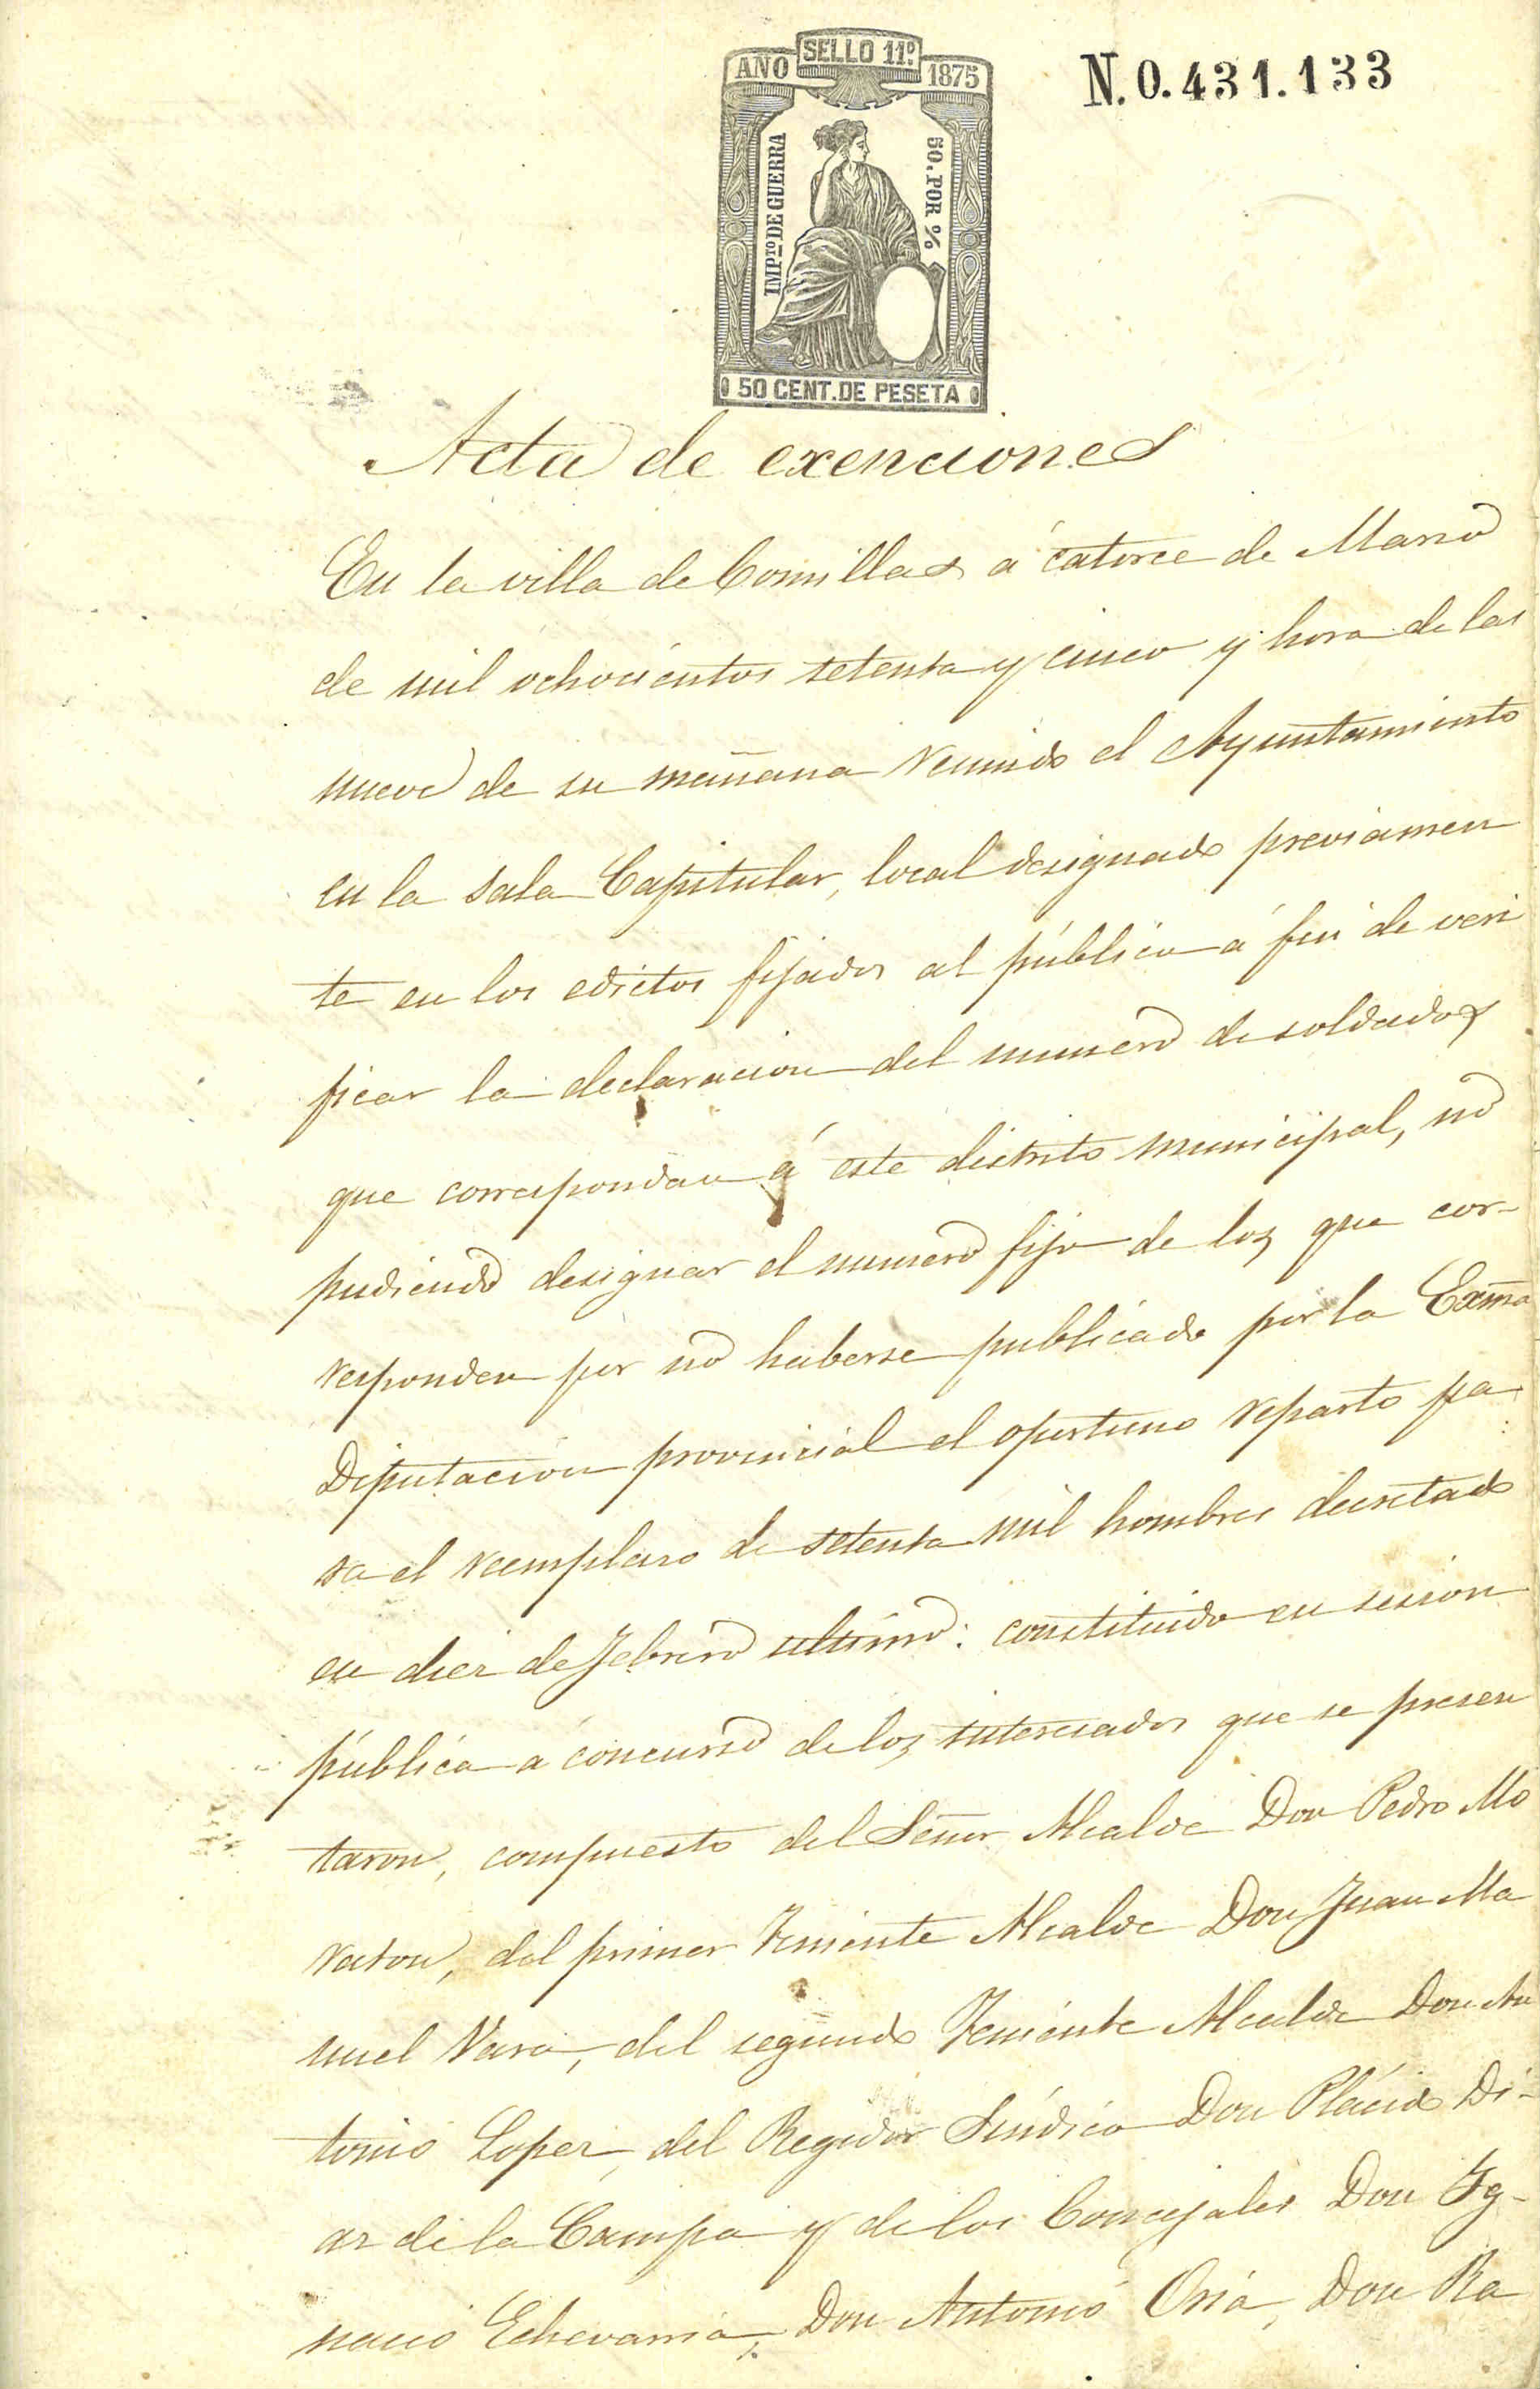 AÑO SELLO 11º 1875
N.0.431.133
IMPTO DE GUERRA
50. POR %
50 CENT. DE PESETA
Acta de exenciones
En la villa de Comillas á catorce de Marzo
de mil ochocientos setenta y cinco y hora de las
nueve de su mañana reunido el Ayuntamiento
en la Sala Capitular, local designado previamen
te en los edictos fijados al público á fin de veri
ficar la declaracion del numero de soldados
que correspondan á este distrito municipal, no
pudiendo designar el numero fijo de los que cor-
responden por no haberse publicado por la Exma
Diputación provincial el oportuno reparto pa
ra el reemplazo de setenta mil hombres decretado
en diez de Febrero ultimo: constituido en sesion
pública á concurso de los interesados que se presen
taron, compuesto del Señor Alcalde Don Pedro Mo
raton, del primer Teniente Alcalde Don Juan Ma
nuel Vara, del segundo Teniente Alcalde Don An
tonio Lopez, del Regidor Síndico Don Plácido Di-
az de la Campa y de los Concejales Don Ig-
nacio Echevarria, Don Antonio Oria, Don Ra